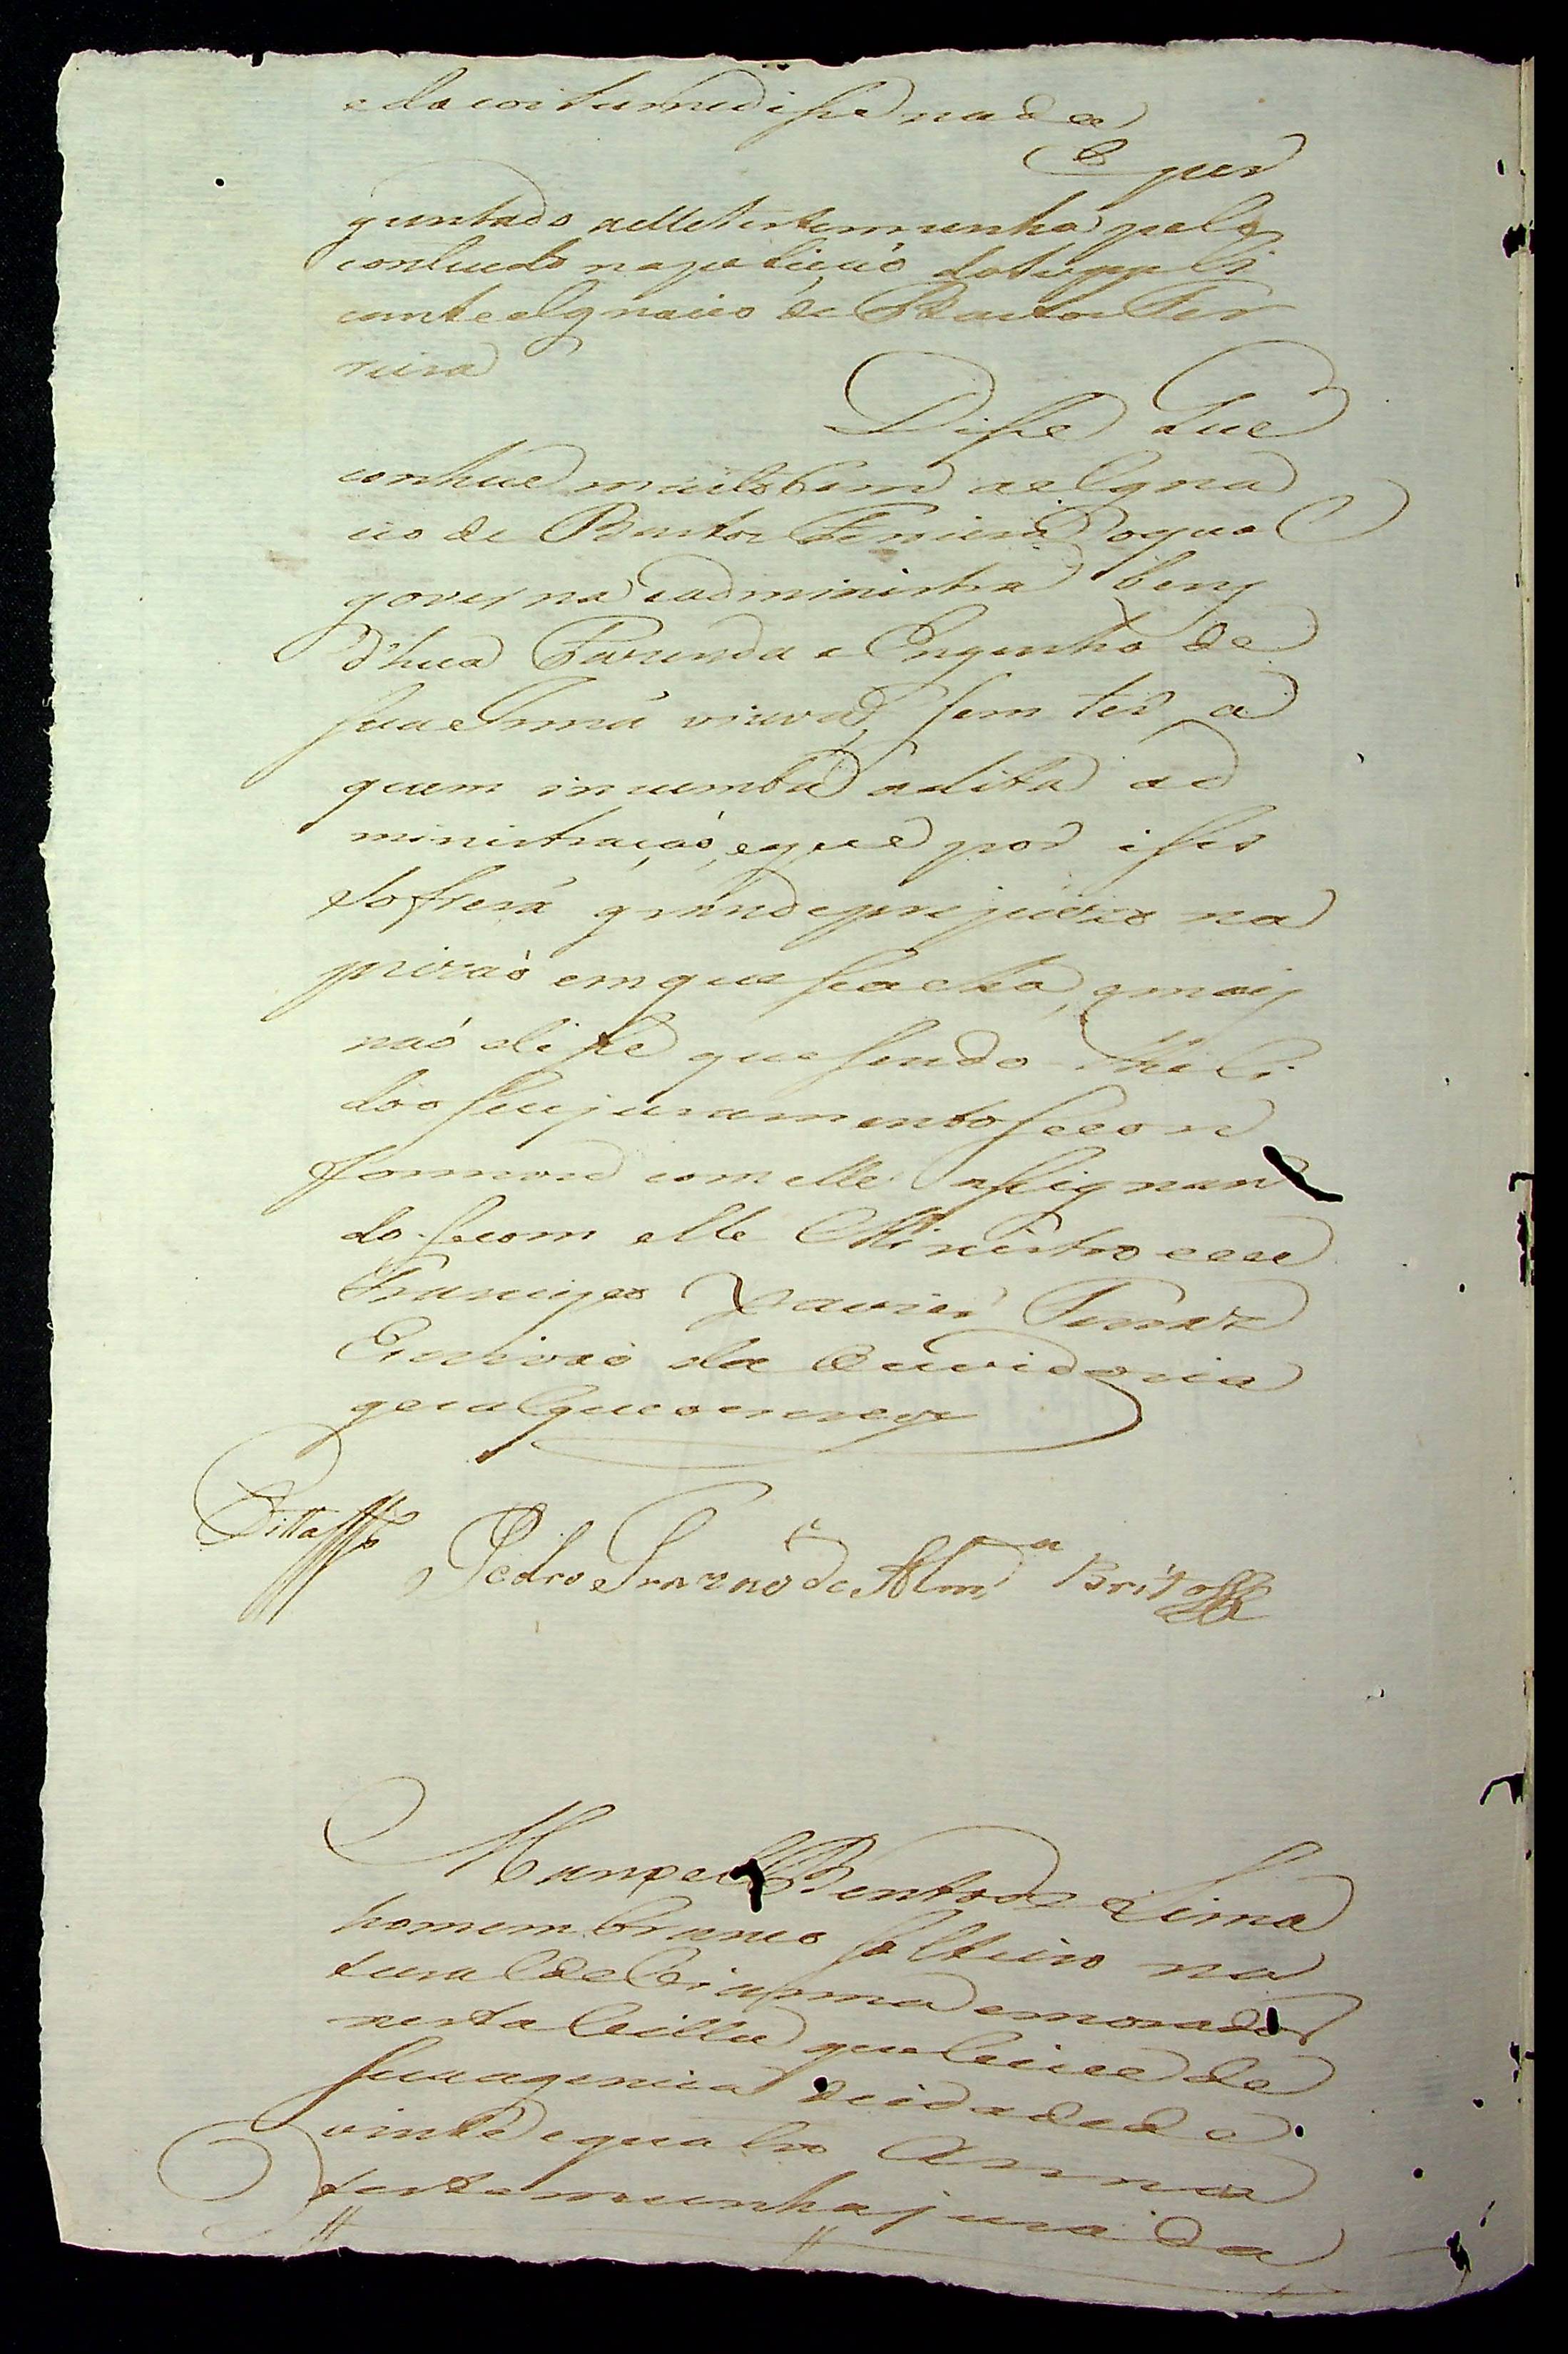 e do costume disse nada
E per
guntado a elle testemunha pelo
contiudo na petiçaó do suppli
cante Ignacio de Bastos Fer
reira
Disse Que
conhece muito bem a Igna
cio de Bastos Ferreira o qual
governa e administra beny
d'hua Fazenda e Engenho de
sua Irmá viuva, sem ter a
quem incumba a dita ad
ministraçaó, e que por isso
sofrerá grande prejuizo na
prizaó em que se acha, e mais
naó disse que sendo-lhe li
do o seu juramento se con
formou com elle assignan
do-se com elle Ministro e eu
Francisco Xavier Ferraz
Escrivaó da Ouvidoria
geral que o escrevy
Pitta
Pedro Frazaó de Almda Britto
Manoel Bento de Lima
homem branco solteiro na
tural de Vianna e morador
nesta Villa que vive de
sua agencia de idade de
vinte e quatro Annos
testemunha jurada